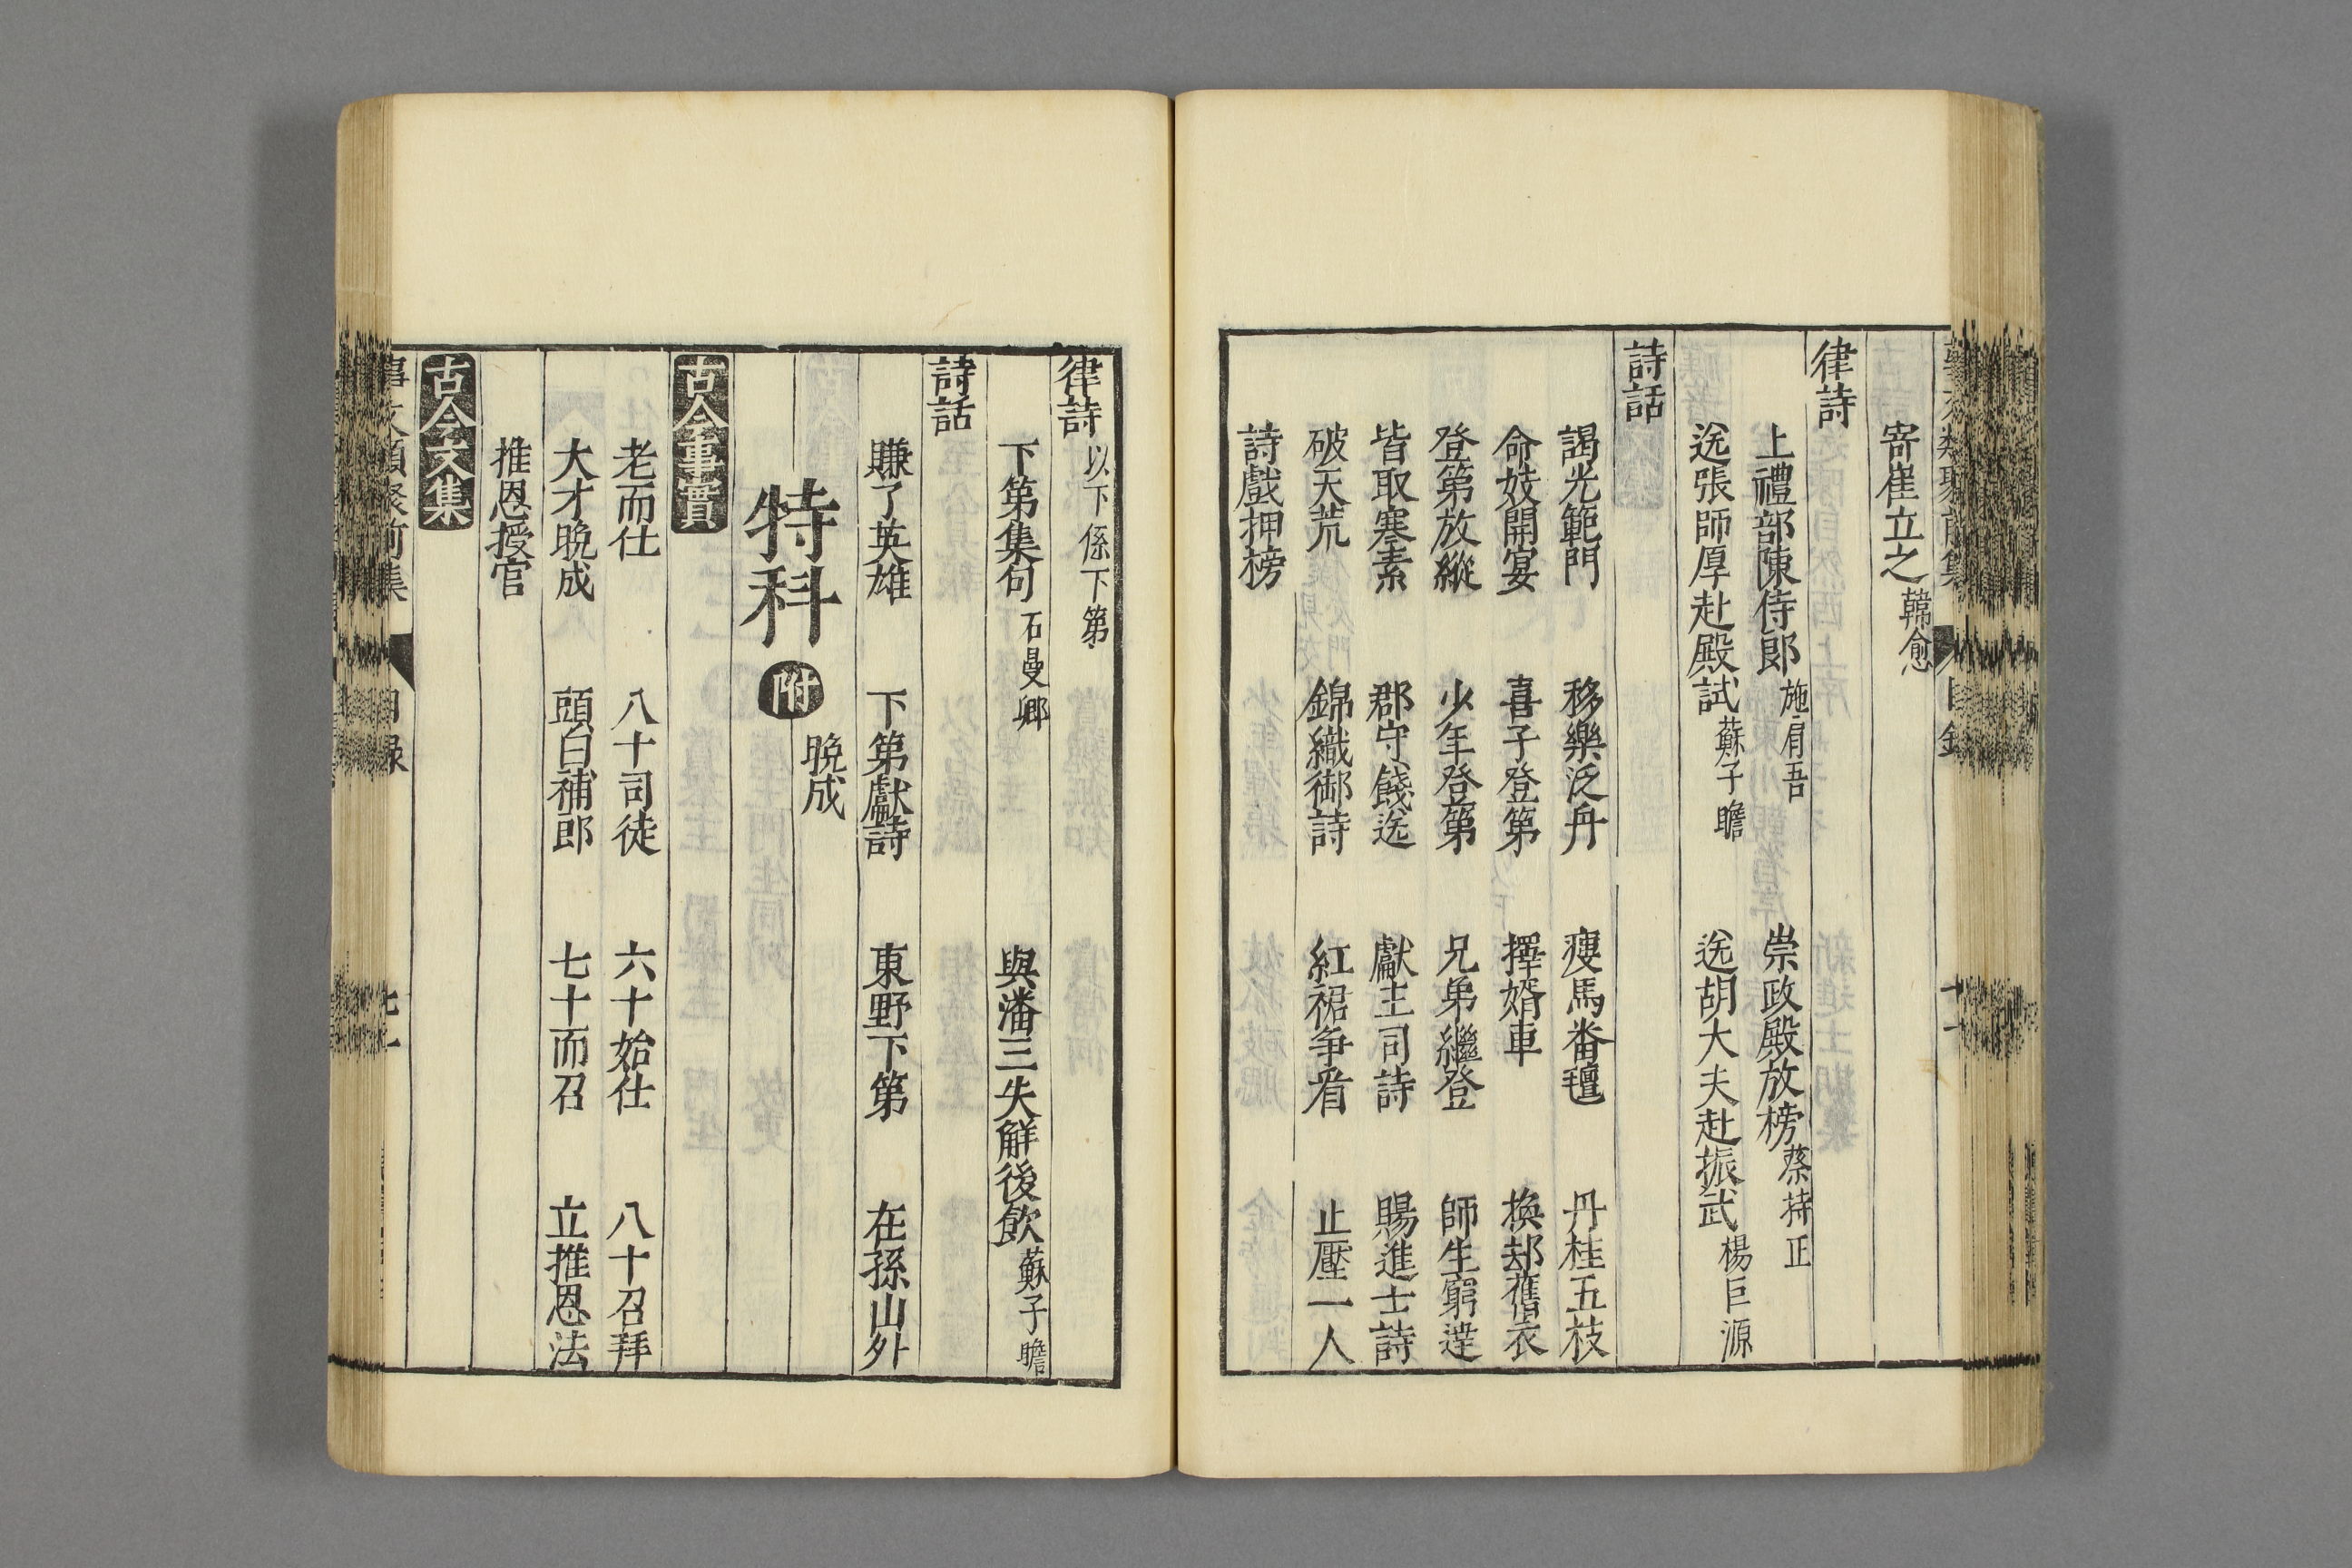 寄崔立之 韓愈
律詩
上禮部陳侍郎 施肩吾 崇政殿放榜 蔡持正
送張師厚赴殿試 蘇子瞻 送胡大夫赴振武 楊巨源
詩話
謁光範門 移樂泛舟 瘦馬畨氊 丹桂五枝
命妓開宴 喜子登第 擇婿車 換却舊衣
登第放縱 少年登第 兄弟繼登 師生窮達
皆取寒素 郡守餞送 獻主司詩 賜進士詩
破天荒 錦織御詩 紅裙争看 止壓一人
詩戲押榜
律詩 以下係下第
下第集句 石曼卿 與潘三失解後飲 蘇子瞻
詩話
賺了英雄 下第獻詩 東野下第 在孫山外
特科 附 晚成
古今事實
老而仕 八十司徒 六十始仕 八十召拜
大才晚成 頭白補郎 七十而召 立推恩法
推恩授官
古今文集